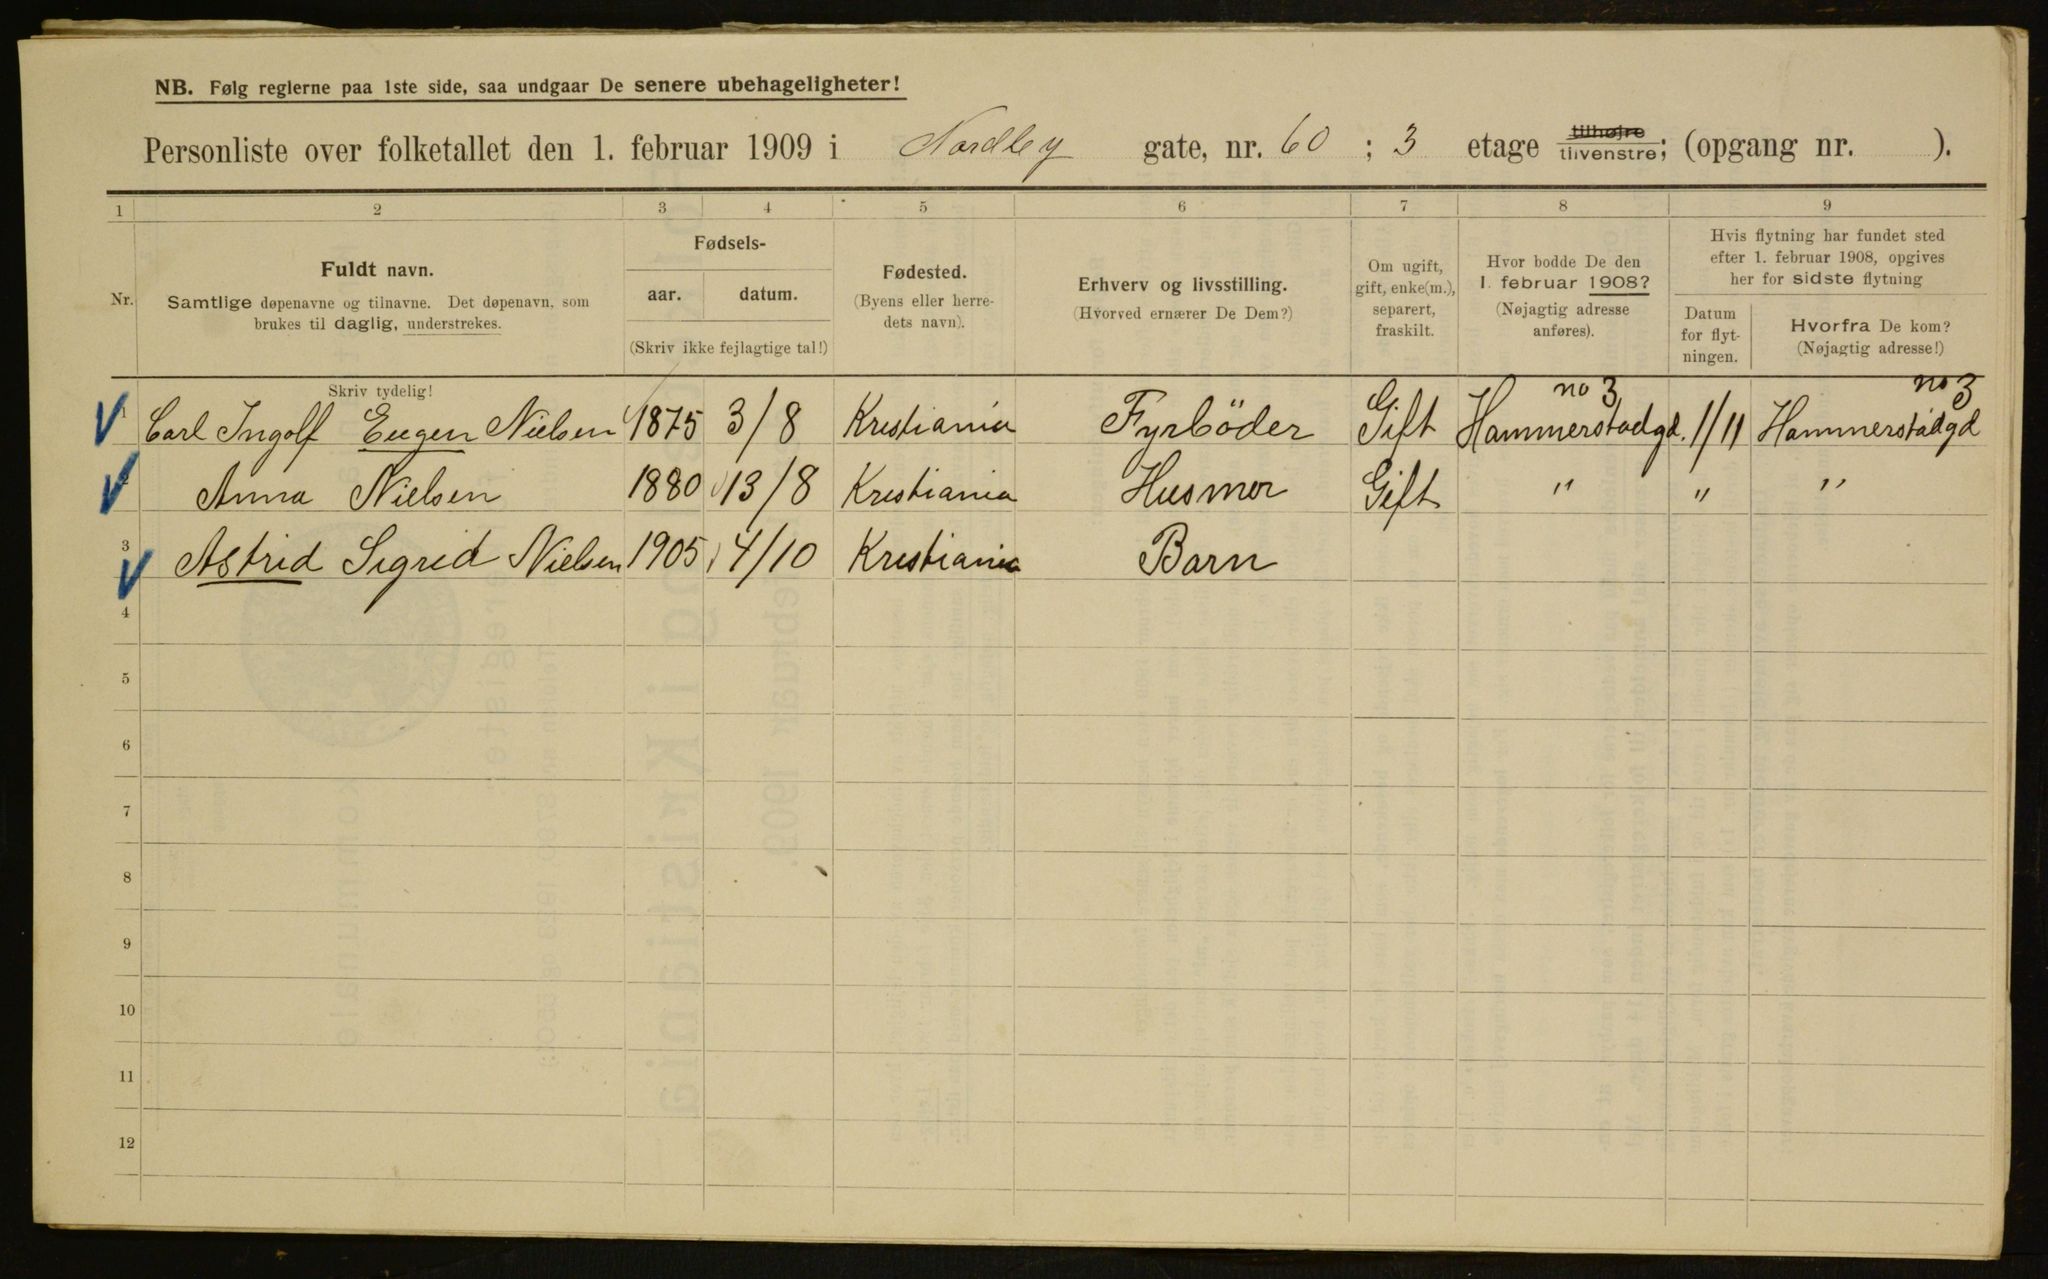 NB. Følg reglerne paa 1ste side, saa undgaar De senere ubehageligheter!
Personliste over folketallet den 1. februar 1909 i Nordby gate, nr. 60 ; 3 etage tilhøjre tilvenstre; (opgang nr. ).
1 2 3 4 5 6 7 8 9
Nr.
Fuldt navn.
Samtlige døpenavne og tilnavne. Det døpenavn, som
brukes til daglig, understrekes.
Fødsels-
aar. datum.
(Skriv ikke fejlagtige tal!)
Fødested.
(Byens eller herre-
dets navn).
Erhverv og livsstilling.
(Hvorved ernærer De Dem?)
Om ugift,
gift, enke(m.),
separert,
fraskilt.
Hvor bodde De den
1. februar 1908?
(Nøjagtig adresse
anføres).
Hvis flytning har fundet sted
efter 1. februar 1908, opgives
her for sidste flytning
Datum
for flyt-
ningen.
Hvorfra De kom?
(Nøjagtig adresse!)
Skriv tydelig!
no 3 no 3
1 Carl Ingolf Eugen Nielsen 1875 3/8 Kristiania Fyrböder Gift Hammerstadgd. 1/11 Hammerstadgd
Anna Nielsen 1880 13/8 Kristiania Husmor Gift " " "
3 Astrid Sigrid Nielsen 1905 4/10 Kristiania Barn
4
5
6
7
8
9
10
11
12